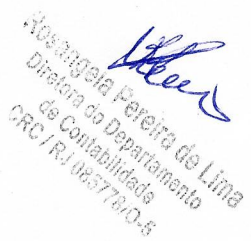 Rosangela Pereira de Lima
Diretora do Departamento
de Contabilidade
CRC/RJ 085778/O-6